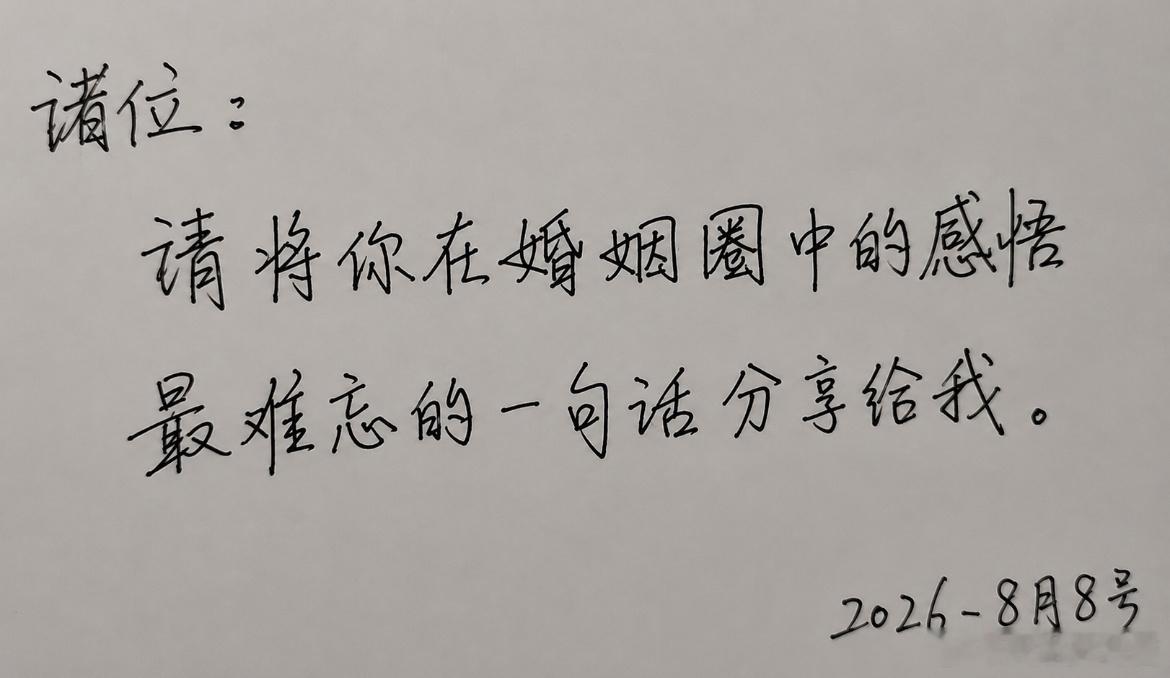 诸位：
请将你在婚姻圈中的感悟
最难忘的一句话分享给我。
2026-8月8号